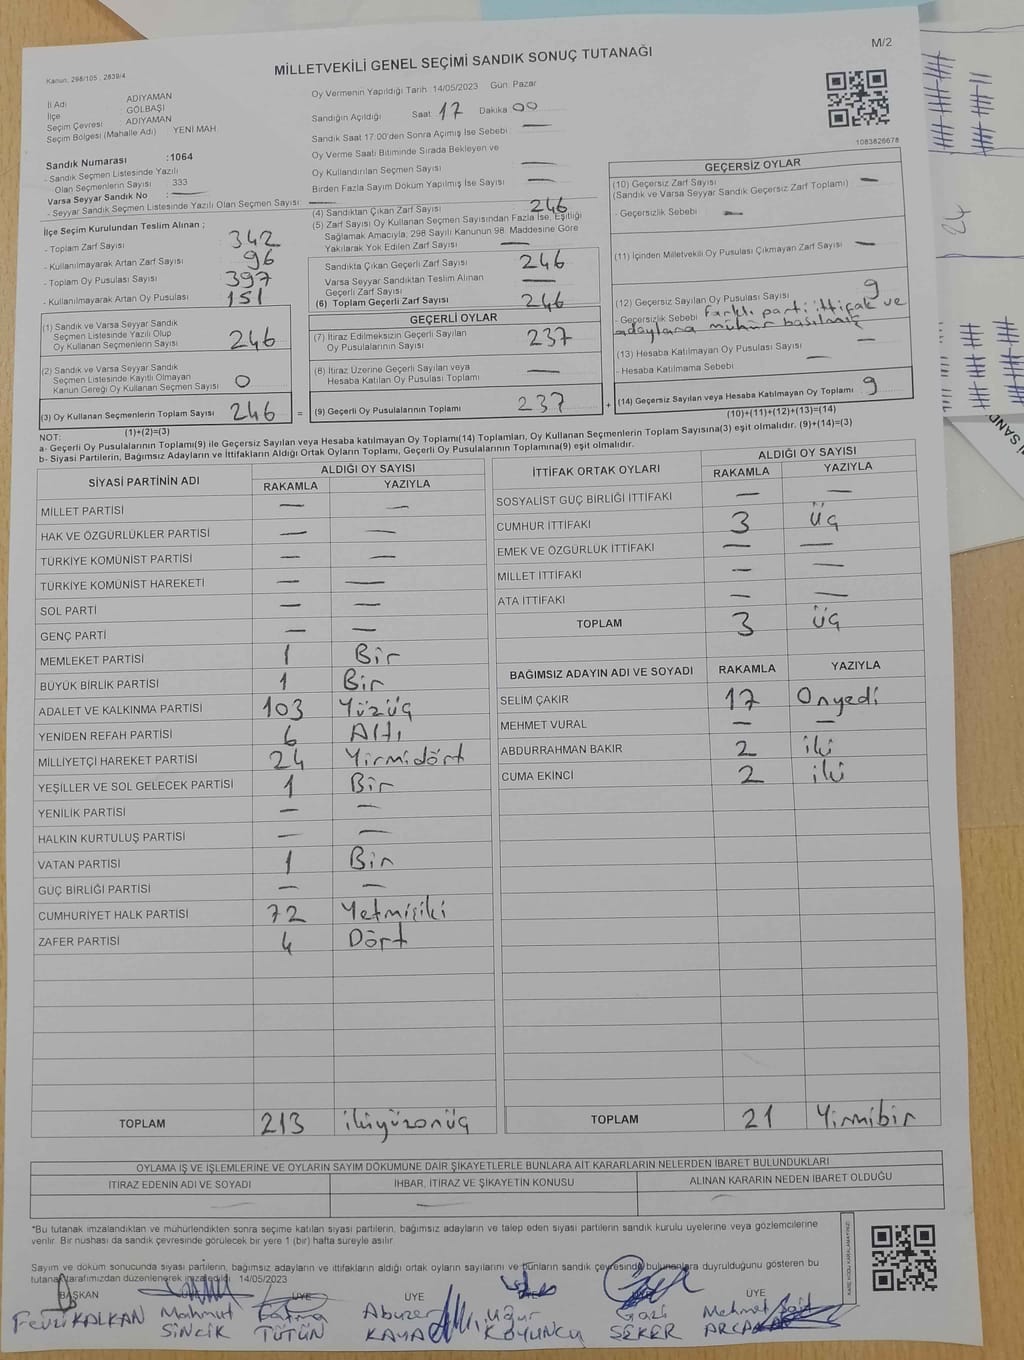 MİLLETVEKİLİ GENEL SEÇİMİ SANDIK SONUÇ TUTANAĞI
M/2
Kanun: 298/105 , 2839/4
İl Adı ADIYAMAN
İlçe GÖLBAŞI
Seçim Çevresi ADIYAMAN
Seçim Bölgesi (Mahalle Adı) YENİ MAH.
Sandık Numarası :1064
- Sandık Seçmen Listesinde Yazılı
Olan Seçmenlerin Sayısı : 333
Varsa Seyyar Sandık No : —
- Seyyar Sandık Seçmen Listesinde Yazılı Olan Seçmen Sayısı : —
Oy Vermenin Yapıldığı Tarih: 14/05/2023 Gün: Pazar
Sandığın Açıldığı Saat 17 Dakika 00
Sandık Saat 17:00'den Sonra Açımış İse Sebebi : —
Oy Verme Saati Bitiminde Sırada Bekleyen ve
Oy Kullandırılan Seçmen Sayısı —
Birden Fazla Sayım Döküm Yapılmış İse Sayısı —
1083826678
İlçe Seçim Kurulundan Teslim Alınan ;
- Toplam Zarf Sayısı : 342
- Kullanılmayarak Artan Zarf Sayısı : 96
- Toplam Oy Pusulası Sayısı : 397
- Kullanılmayarak Artan Oy Pusulası : 151
(1) Sandık ve Varsa Seyyar Sandık
Seçmen Listesinde Yazılı Olup
Oy Kullanan Seçmenlerin Sayısı 246
(2) Sandık ve Varsa Seyyar Sandık
Seçmen Listesinde Kayıtlı Olmayan
Kanun Gereği Oy Kullanan Seçmen Sayısı 0
(3) Oy Kullanan Seçmenlerin Toplam Sayısı 246 =
(1)+(2)=(3)
(4) Sandıktan Çıkan Zarf Sayısı 246
(5) Zarf Sayısı Oy Kullanan Seçmen Sayısından Fazla İse, Eşitliği
Sağlamak Amacıyla, 298 Sayılı Kanunun 98. Maddesine Göre
Yakılarak Yok Edilen Zarf Sayısı —
Sandıkta Çıkan Geçerli Zarf Sayısı 246
Varsa Seyyar Sandıktan Teslim Alınan
Geçerli Zarf Sayısı —
(6) Toplam Geçerli Zarf Sayısı 246
GEÇERLİ OYLAR
(7) İtiraz Edilmeksizin Geçerli Sayılan
Oy Pusulalarının Sayısı 237
(8) İtiraz Üzerine Geçerli Sayılan veya
Hesaba Katılan Oy Pusulası Toplamı —
(9) Geçerli Oy Pusulalarının Toplamı 237 +
GEÇERSİZ OYLAR
(10) Geçersiz Zarf Sayısı —
(Sandık ve Varsa Seyyar Sandık Geçersiz Zarf Toplamı)
- Geçersizlik Sebebi : —
(11) İçinden Milletvekili Oy Pusulası Çıkmayan Zarf Sayısı —
(12) Geçersiz Sayılan Oy Pusulası Sayısı 9
- Geçersizlik Sebebi Farklı parti ittifak ve
adaylara mühür basılmış
(13) Hesaba Katılmayan Oy Pusulası Sayısı —
- Hesaba Katılmama Sebebi —
(14) Geçersiz Sayılan veya Hesaba Katılmayan Oy Toplamı 9
(10)+(11)+(12)+(13)=(14)
NOT:
a- Geçerli Oy Pusulalarının Toplamı(9) ile Geçersiz Sayılan veya Hesaba katılmayan Oy Toplamı(14) Toplamları, Oy Kullanan Seçmenlerin Toplam Sayısına(3) eşit olmalıdır. (9)+(14)=(3)
b- Siyasi Partilerin, Bağımsız Adayların ve İttifakların Aldığı Ortak Oyların Toplamı, Geçerli Oy Pusulalarının Toplamına(9) eşit olmalıdır.
SİYASİ PARTİNİN ADI ALDIĞI OY SAYISI
RAKAMLA YAZIYLA
MİLLET PARTİSİ — —
HAK VE ÖZGÜRLÜKLER PARTİSİ — —
TÜRKİYE KOMÜNİST PARTİSİ — —
TÜRKİYE KOMÜNİST HAREKETİ — —
SOL PARTİ — —
GENÇ PARTİ — —
MEMLEKET PARTİSİ 1 Bir
BÜYÜK BİRLİK PARTİSİ 1 Bir
ADALET VE KALKINMA PARTİSİ 103 Yüzüç
YENİDEN REFAH PARTİSİ 6 Altı
MİLLİYETÇİ HAREKET PARTİSİ 24 Yirmidört
YEŞİLLER VE SOL GELECEK PARTİSİ 1 Bir
YENİLİK PARTİSİ — —
HALKIN KURTULUŞ PARTİSİ — —
VATAN PARTİSİ 1 Bir
GÜÇ BİRLİĞİ PARTİSİ — —
CUMHURİYET HALK PARTİSİ 72 Yetmişiki
ZAFER PARTİSİ 4 Dört
TOPLAM 213 ikiyüzonüç
İTTİFAK ORTAK OYLARI ALDIĞI OY SAYISI
RAKAMLA YAZIYLA
SOSYALİST GÜÇ BİRLİĞİ İTTİFAKI — —
CUMHUR İTTİFAKI 3 Üç
EMEK VE ÖZGÜRLÜK İTTİFAKI — —
MİLLET İTTİFAKI — —
ATA İTTİFAKI — —
TOPLAM 3 Üç
BAĞIMSIZ ADAYIN ADI VE SOYADI RAKAMLA YAZIYLA
SELİM ÇAKIR 17 Onyedi
MEHMET VURAL — —
ABDURRAHMAN BAKIR 2 iki
CUMA EKİNCİ 2 iki
TOPLAM 21 Yirmibir
OYLAMA İŞ VE İŞLEMLERİNE VE OYLARIN SAYIM DÖKÜMÜNE DAİR ŞİKAYETLERLE BUNLARA AİT KARARLARIN NELERDEN İBARET BULUNDUKLARI
İTİRAZ EDENİN ADI VE SOYADI İHBAR, İTİRAZ VE ŞİKAYETİN KONUSU ALINAN KARARIN NEDEN İBARET OLDUĞU
— — —
*Bu tutanak imzalandıktan ve mühürlendikten sonra seçime katılan siyasi partilerin, bağımsız adayların ve talep eden siyasi partilerin sandık kurulu üyelerine veya gözlemcilerine
verilir. Bir nüshası da sandık çevresinde görülecek bir yere 1 (bir) hafta süreyle asılır.
Sayım ve döküm sonucunda siyasi partilerin, bağımsız adayların ve ittifakların aldığı ortak oyların sayılarını ve bunların sandık çevresinde bulunanlara duyrulduğunu gösteren bu
tutanak tarafımızdan düzenlenerek imza edildi. 14/05/2023
KARE KODU KARALAMAYINIZ
BAŞKAN ÜYE ÜYE ÜYE
Fevzi KALKAN Mahmut SİNCİK Fatma TÜTÜN Abuzer KAYA Uğur KOYUNCU Gazi ŞEKER Mehmet Sait
24